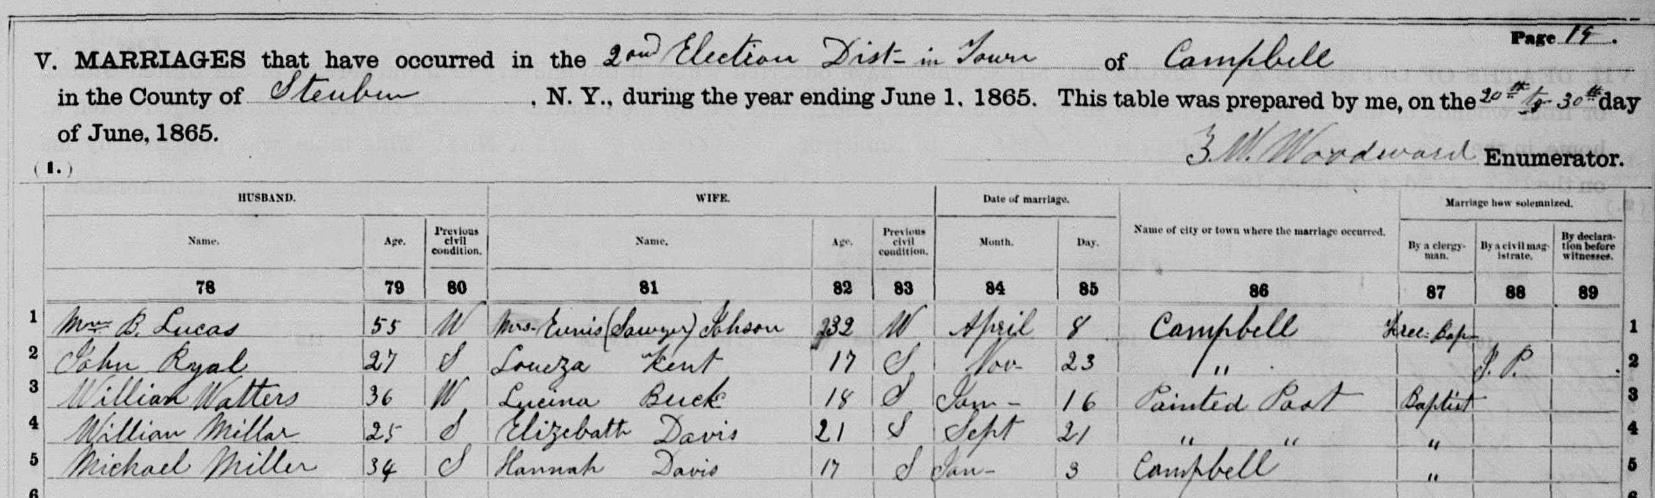 Page 19.
V. MARRIAGES that have occurred in the 2nd Election Dist- in Town of Campbell
in the County of Steuben, N. Y., during the year ending June 1, 1865. This table was prepared by me, on the 20th to 30th day
of June, 1865.
Woodward Enumerator.
(1.)
HUSBAND. WIFE. Date of marriage. Name of city or town where the marriage occurred. Marriage how solemnized.
Name. Age. Previous civil condition. Name. Age. Previous civil condition. Month. Day. By a clergyman. By a civil magistrate. By declaration before witnesses.
78 79 80 81 82 83 84 85 86 87 88 89
1 Wm B. Lucas 55 W Mrs. Eunis (Sawyer) Johson 32 W April 8 Campbell Free-Bap- 1
2 John Ryal 27 S Loueza Kent 17 S Nov- 23 " J. P. 2
3 Willian Watters 36 W Lucina Buck 18 S Jan- 16 Painted Post Baptist 3
4 Willian Millar 25 S Elizebath Davis 21 S Sept 21 " " " 4
5 Michael Miller 34 S Hannah Davis 17 S Jan- 3 Campbell " 5
6